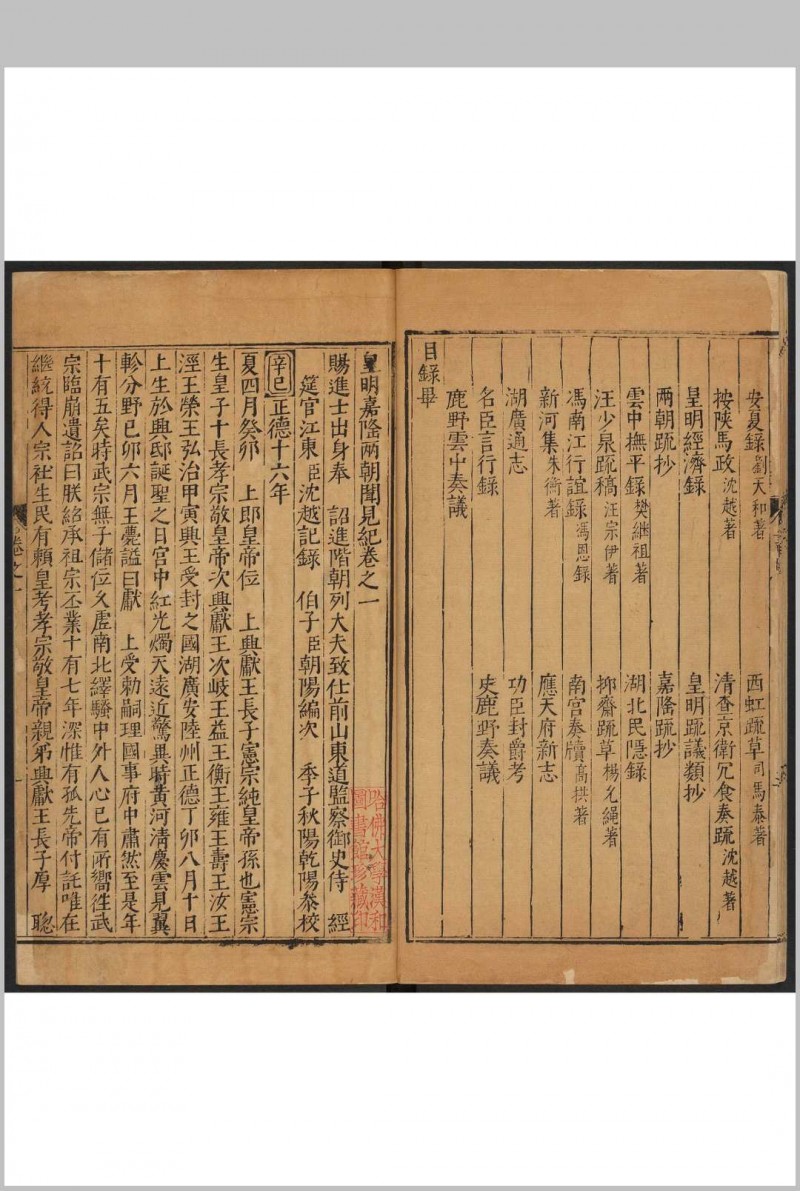 安夏錄劉天和著 西虹疏草司馬泰著
按陝馬政沈越著 清查京衛冗食奏疏沈越著
皇明經濟錄 皇明疏議類抄
兩朝疏抄 嘉隆疏抄
雲中撫平錄樊繼祖著 湖北民隱錄
汪少泉疏稿汪宗伊著 抑齋疏草楊允繩著
馮南江行誼錄馮恩錄 南宮奏牘高拱著
新河集朱衡著 應天府新志
湖廣通志 功臣封爵考
名臣言行錄 史鹿野奏議
鹿野雲中奏議
目錄畢
皇明嘉隆兩朝聞見紀卷之一
賜進士出身奉 詔進階朝列大夫致仕前山東道監察御史侍 經
筵官江東臣沈越記錄 伯子臣朝陽編次 季子秋陽乾陽叅校
辛巳正德十六年
夏四月癸卯 上即皇帝位 上興獻王長子憲宗純皇帝孫也憲宗
生皇子十長孝宗敬皇帝次興獻王次岐王益王衡王雍王壽王汝王
涇王榮王弘治甲寅興王受封之國湖廣安陸州正德丁卯八月十日
上生於興邸誕聖之日宮中紅光燭天遠近驚異時黃河清慶雲見翼
軫分野已卯六月王薨謚曰獻 上受勅嗣理國事府中肅然至是年
十有五矣時武宗無子儲位久虛南北繹騷中外人心已有所嚮徃武
宗臨崩遺詔曰朕紹承祖宗丕業十有七年深惟有孤先帝付託唯在
繼統得人宗社生民有賴皇考孝宗敬皇帝親弟興獻王長子厚 聰
哈佛大學漢和
圖書館珍藏印
卷之一